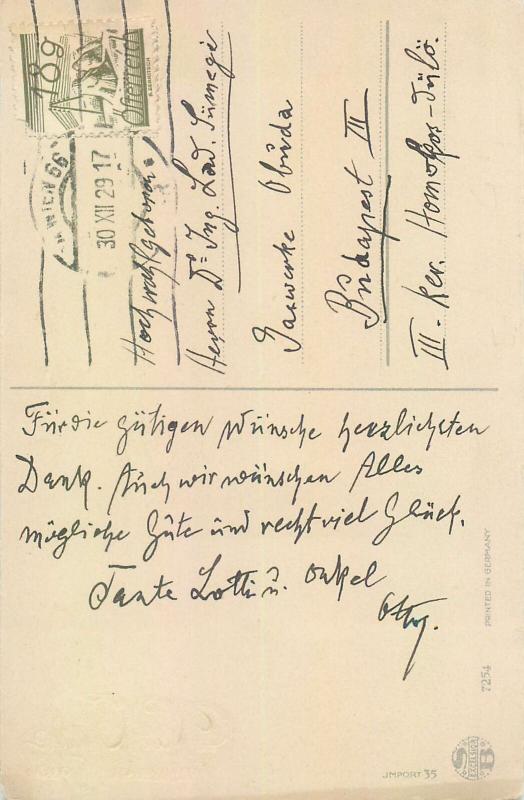 18g
Österreich
WIEN 66
30 XII 29 17
Hochwohlgeboren
Herrn Dr Ing. Lad. Sümegi
Gaswerke Obuda
Budapest III
III. Ker. Homokos-dülö.
Für die gütigen Wünsche herzlichsten
Dank. Auch wir wünschen Alles
mögliche Gute und recht viel Glück.
Tante Lotti u. Onkel
Otto.
PRINTED IN GERMANY
7254
JMPORT 35
EXCELSIOR
B